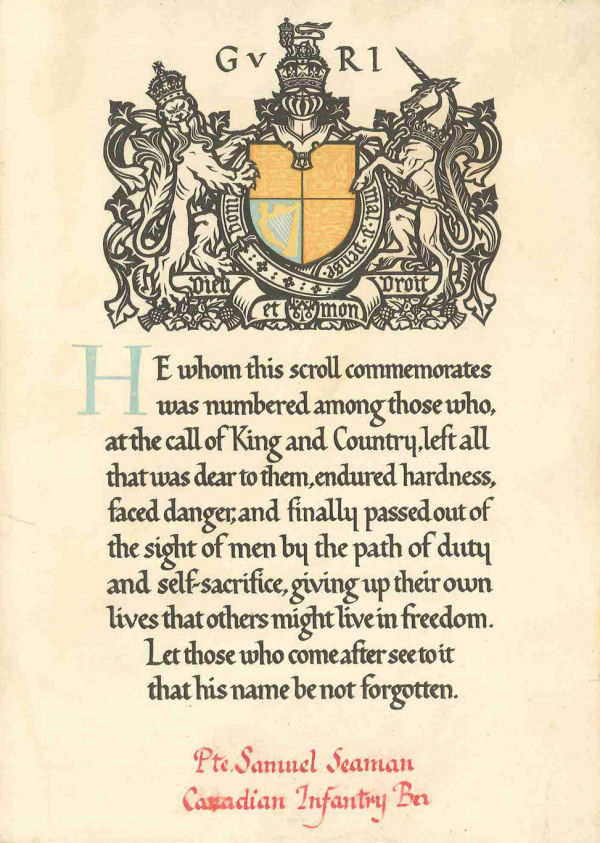 G V R I
Dieu et mon Droit
HE whom this scroll commemorates
was numbered among those who,
at the call of King and Country, left all
that was dear to them, endured hardness,
faced danger, and finally passed out of
the sight of men by the path of duty
and self-sacrifice, giving up their own
lives that others might live in freedom.
Let those who come after see to it
that his name be not forgotten.
Pte. Samuel Seaman
Canadian Infantry Bn